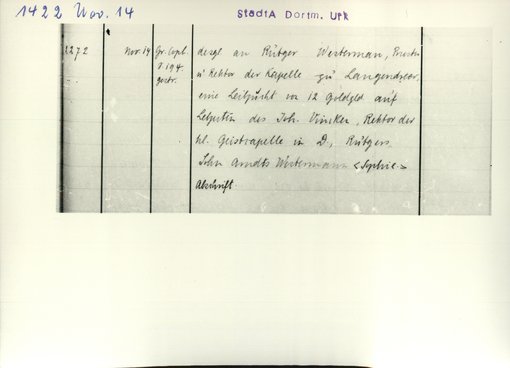 1422 Nov. 14
StadtA Dortm. Urk
1272 Nov 14 Gr. Cop. desgl an Rütger Westerman, Priester
S. 194 u Rektor der Kapelle zu Langendreer
gestr. eine Leibzucht von 12 Goldgld auf
Lebzeiten des Joh. Vincken, Rektor der
hl. Geistcapelle in D., Rütgers
Sohn Arndts Westermann <Sophie>
Abschrift